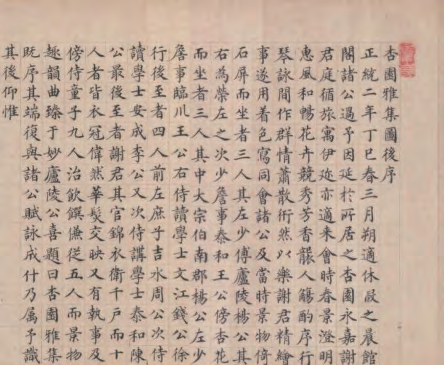 杏園雅集圖後序
正統二年丁巳春三月朔適休暇之晨館
閣諸公過予因延於所居之杏園永嘉謝
君庭循旅寓伊迩亦適来會時春景澄明
惠風和暢花卉競秀芳香襲人觴酌序行
琴詠間作群情蕭散衎然以樂謝君精繪
事遂用着色寫同會諸公及當時景物倚
石屏而坐者三人其左少傅廬陵楊公其
右為榮左之次少詹事泰和王公傍杏花
而坐者三人其中大宗伯南郡楊公左少
詹事臨川王公右侍讀學士文江錢公徐
行後至者四人前左庶子吉水周公次侍
讀學士安成李公又次侍講學士泰和陳
公最後至者謝君其官錦衣衛千戶而十
人者皆衣冠偉然華髮交映又有執事及
傍侍童子九人治飲饌傔從五人而景物
趣韻曲臻于妙廬陵公喜題曰杏園雅集
既序其端復與諸公賦詠成什乃属予識
其後仰惟